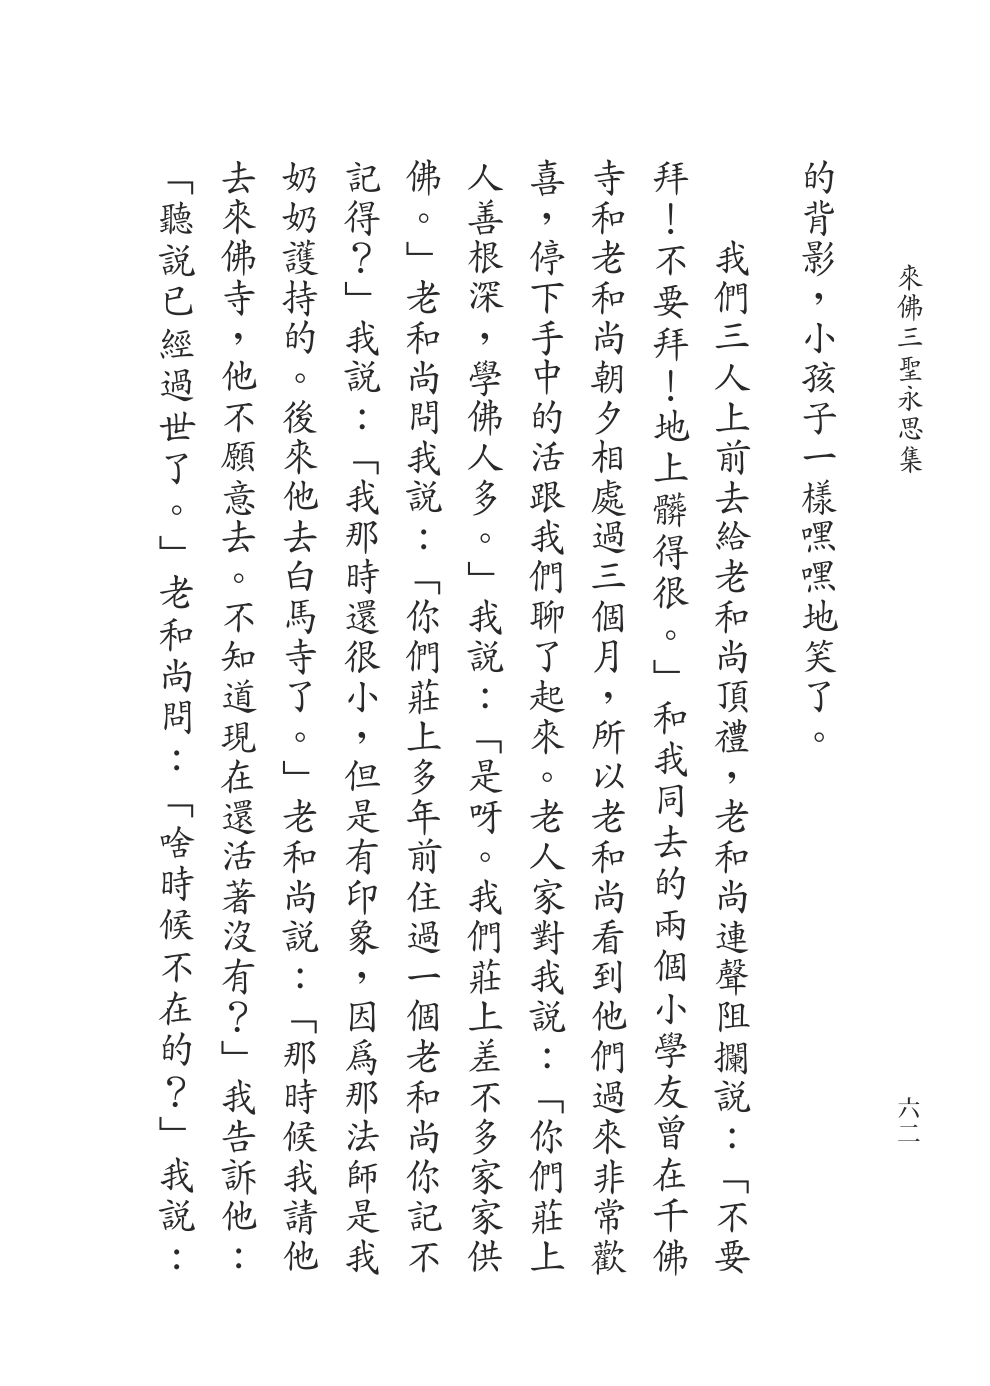 來佛三聖永思集
六二
的背影，小孩子一樣嘿嘿地笑了。
我們三人上前去給老和尚頂禮，老和尚連聲阻攔説：「不要
拜！不要拜！地上髒得很。」和我同去的兩個小學友曾在千佛
寺和老和尚朝夕相處過三個月，所以老和尚看到他們過來非常歡
喜，停下手中的活跟我們聊了起來。老人家對我説：「你們莊上
人善根深，學佛人多。」我説：「是呀。我們莊上差不多家家供
佛。」老和尚問我説：「你們莊上多年前住過一個老和尚你記不
記得？」我説：「我那時還很小，但是有印象，因爲那法師是我
奶奶護持的。後來他去白馬寺了。」老和尚説：「那時候我請他
去來佛寺，他不願意去。不知道現在還活著沒有？」我告訴他：
「聽説已經過世了。」老和尚問：「啥時候不在的？」我説：